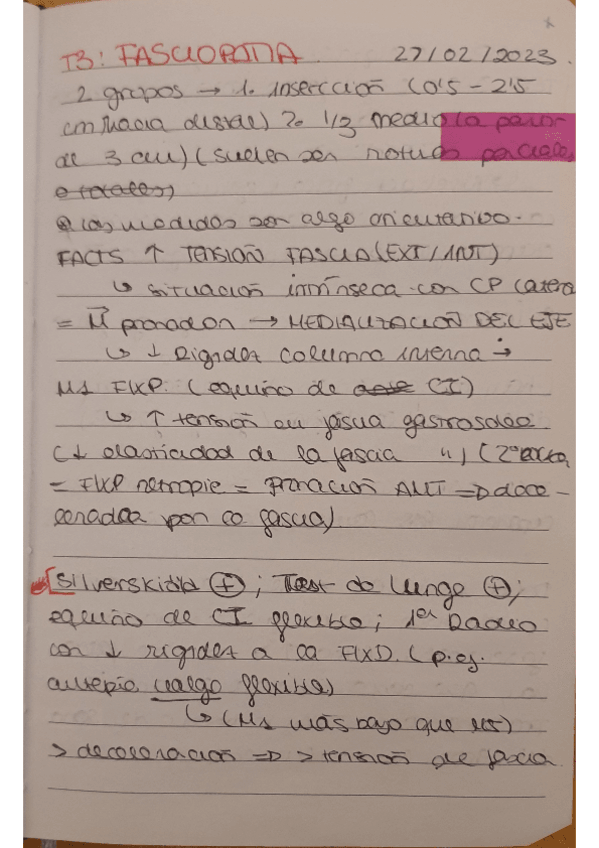 T3: FASCIOPATÍA 27/02/2023.
2 grupos → 1. inserción (0'5 - 2'5
cm hacia distal) 2. 1/3 medio (a partir
de 3 cm) (suelen ser roturas parciales,
o totales)
las medidas son algo orientativo.
FACTS ↑ TENSIÓN FASCIA (EXT/INT)
↳ situación intrínseca con CP
= M pronador → MEDIALIZACIÓN DEL EJE
↳ ↓ Rigidez columna interna →
M1 FIXP. (equino de CI)
↳ ↑ tensión en fascia gastrosóleo
(↓ elasticidad de la fascia ") (
= FIXP retropie = Pronación ANT ⇒ dece-
lerada por la fascia)
Silverskiold (+); Test de Lunge (+);
equino de CI flexible; 1er Radio
con ↓ rigidez a la FIXD. (p.ej.
antepié valgo flexible)
↳ (M1 más bajo que )
> deceleración ⇒ > tensión de fascia.